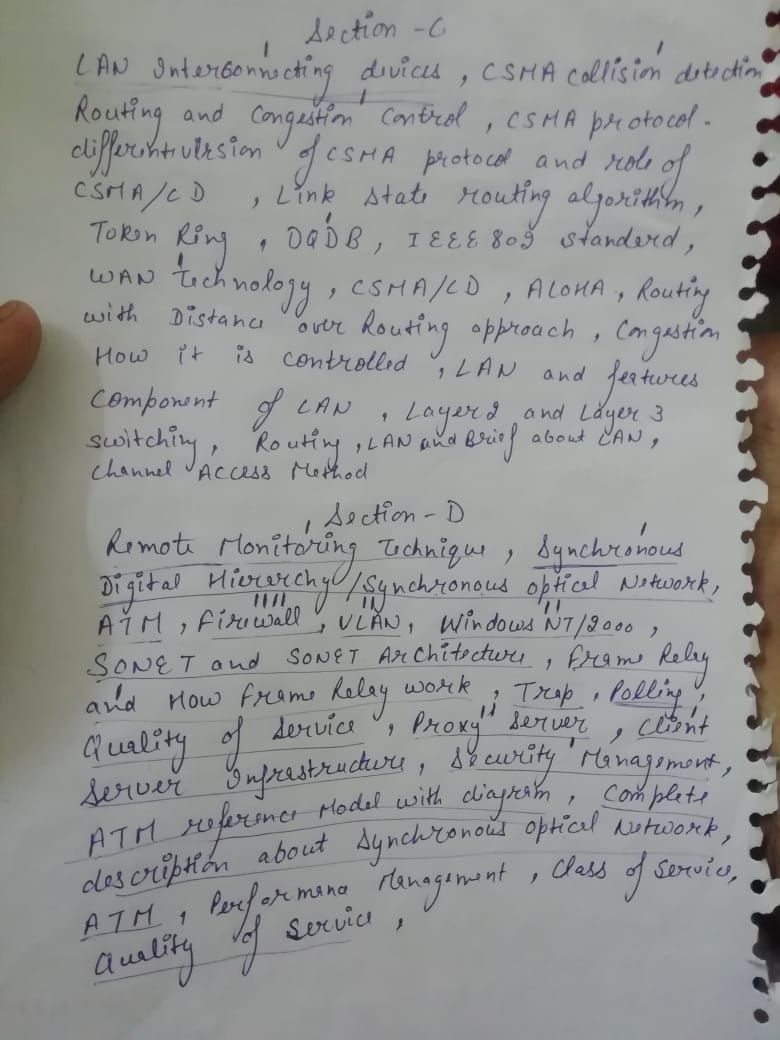 Section - C
LAN Interconnecting devices, CSMA collision detection
Routing and Congestion Control, CSMA protocol.
different version of CSMA protocol and role of
CSMA/CD, Link State routing algorithm,
Token Ring, DQDB, IEEE 802 standerd,
WAN Technology, CSMA/CD, ALOHA, Routing
with Distance over Routing approach, Congestion
How it is controlled, LAN and features
Component of LAN, Layer 2 and Layer 3
switching, Routing, LAN and Brief about LAN,
Channel Access Method
Section - D
Remote Monitoring Technique, Synchronous
Digital Hierarchy/Synchronous optical Network,
ATM, Firewall, VLAN, Windows NT/2000,
SONET and SONET Architecture, Frame Relay
and How Frame Relay work, Trap, Polling,
Quality of Service, Proxy Server, Client
Server Infrastructure, Security Management,
ATM reference Model with diagram, Complete
description about Synchronous optical Network,
ATM, Performance Management, Class of Service,
Quality of Service,